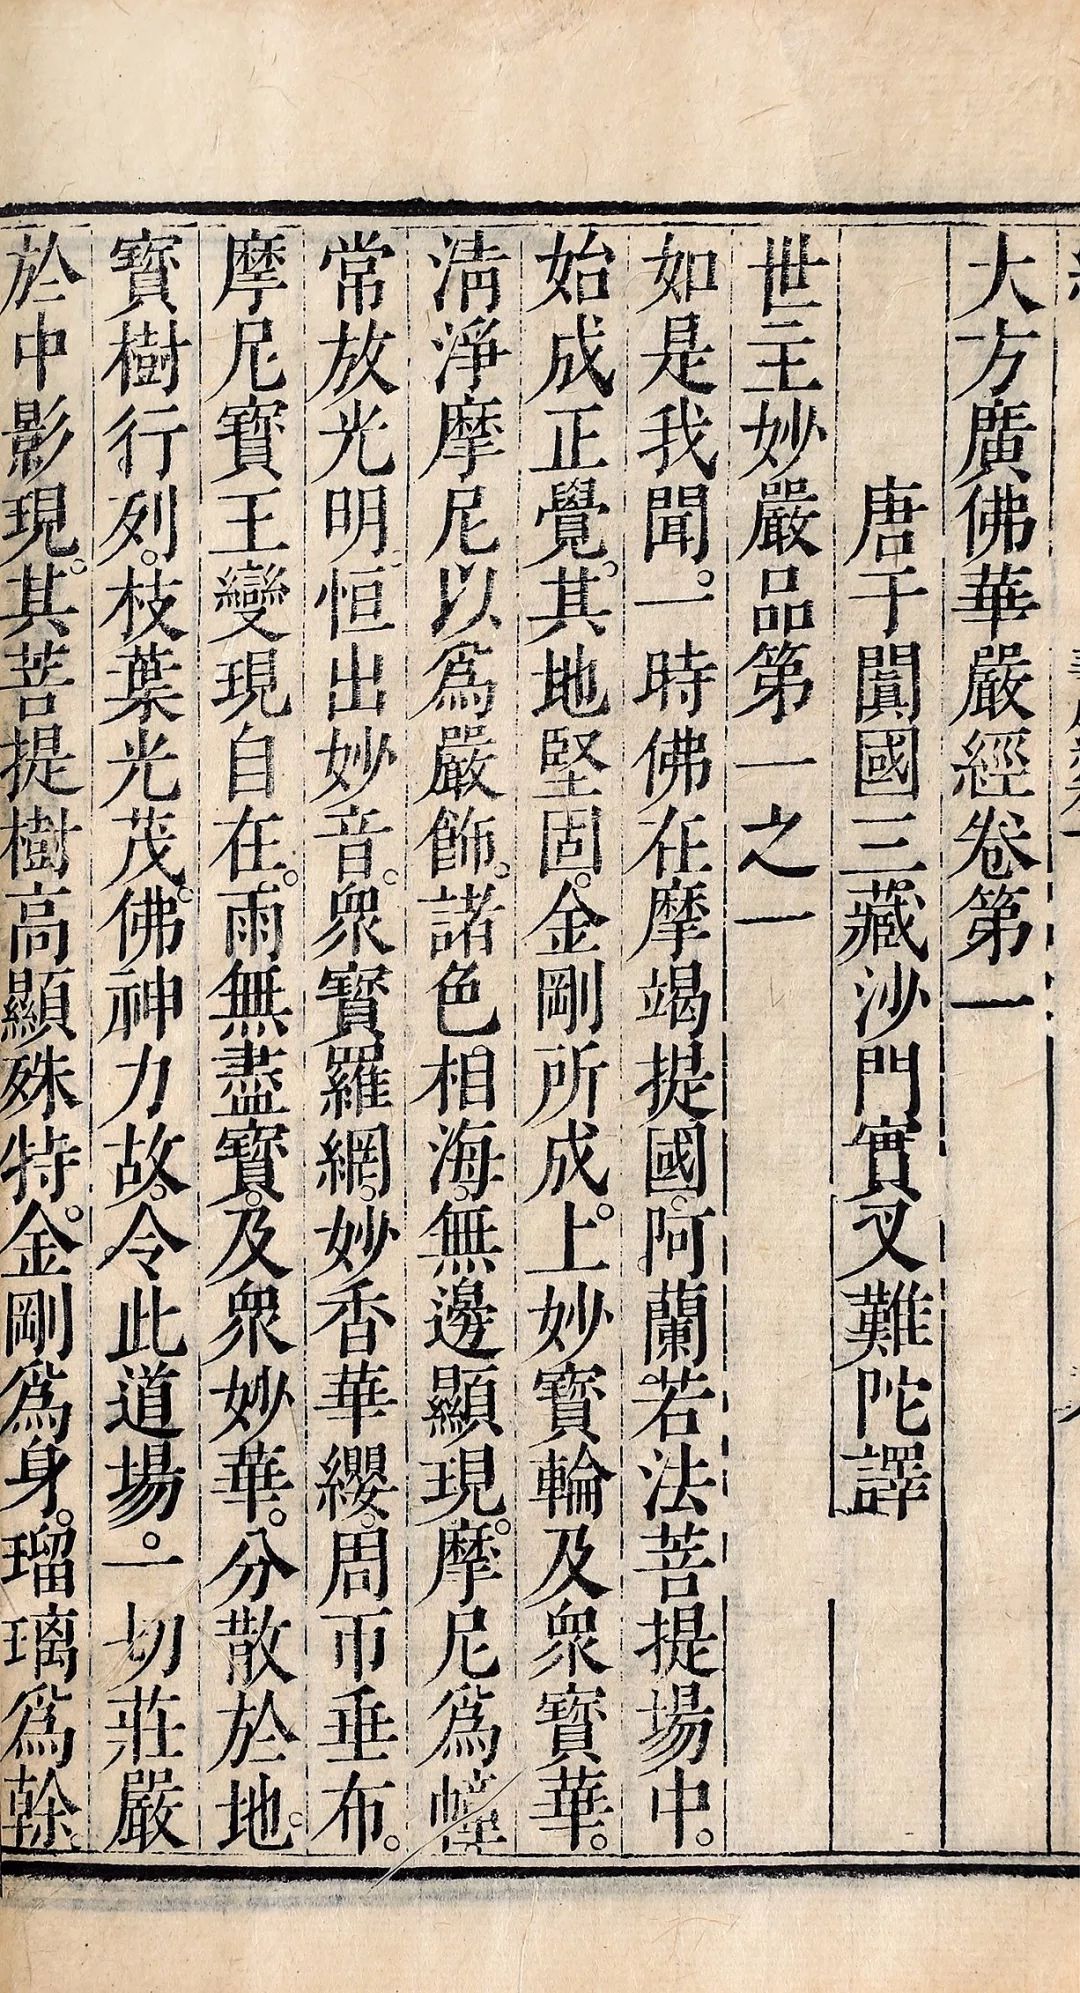 大方廣佛華嚴經卷第一
唐于闐國三藏沙門實叉難陀譯
世主妙嚴品第一之一
如是我聞。一時佛在摩竭提國。阿蘭若法菩提場中。
始成正覺。其地堅固。金剛所成。上妙寶輪及衆寶華。
清淨摩尼以爲嚴飾。諸色相海。無邊顯現。摩尼爲幢
常放光明恒出妙音。衆寶羅網。妙香華纓。周帀垂布。
摩尼寶王變現自在。雨無盡寶。及衆妙華。分散於地。
寶樹行列。枝葉光茂。佛神力故。令此道場。一切莊嚴
於中影現。其菩提樹高顯殊特。金剛爲身。瑠璃爲榦。